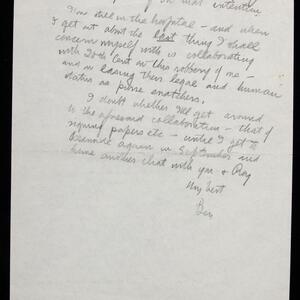 of that intention.
I'm still in the hospital - and when
I get out about the last thing I shall
concern myself with is collaborating
with 20th Cent in this robbery of me -
and in easing their legal and human
status as purse snatchers.
I doubt whether I'll get around
to the aforesaid collaboration - that of
signing papers etc - until I get to
again in September and
have another chat with you & Roy
My best
Ben